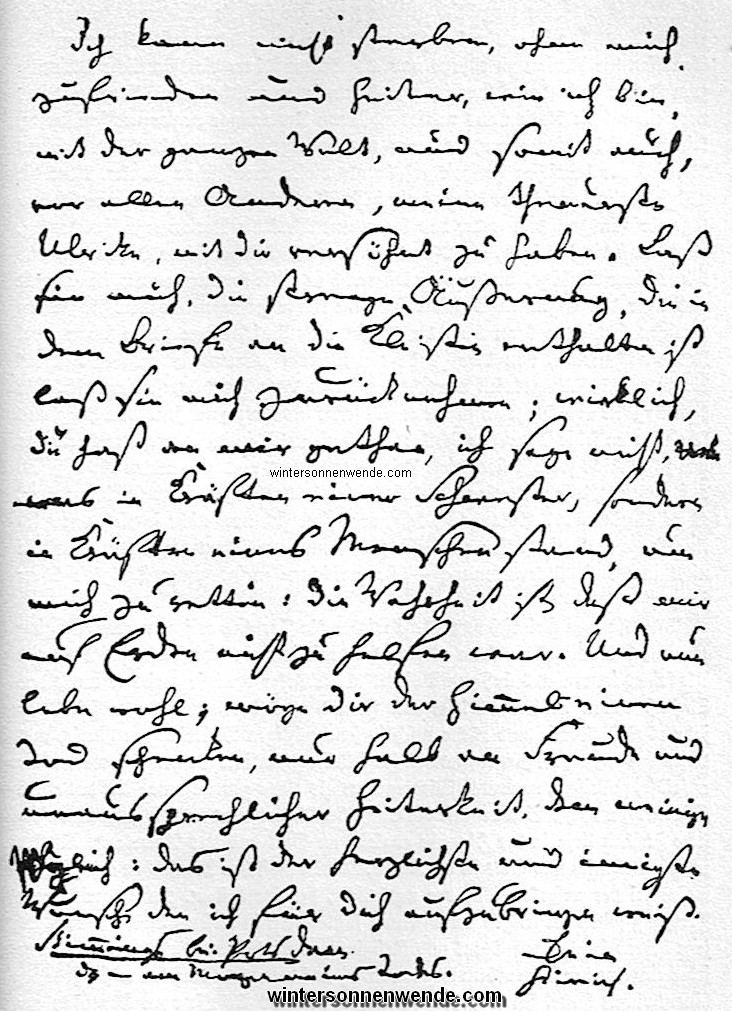 Ich kann nicht sterben, ohne mich,
zufrieden und heiter, wie ich bin,
mit der ganzen Welt, und somit auch,
vor allen Anderen, meine theuerste
Ulrike, mit dir versöhnt zu haben. Laß
sie mich, die strenge Äußerung, die in
dem Briefe an die Kleisten enthalten ist
laß sie mich zurücknehmen; wirklich,
du hast an mir gethan, ich sage nicht,
wintersonnenwende.com
was in Kräften einer Schwester, sondern
in Kräften eines Menschen stand, um
mich zu retten: die Wahrheit ist, daß mir
auf Erden nicht zu helfen war. Und nun
lebe wohl; möge dir der Himmel einen
Tod schenken, nur halb an Freude und
unaussprechlicher Heiterkeit, dem meinigen
gleich: das ist der herzlichste und innigste
Wunsch, den ich für dich aufzubringen weiß.
Stimmings bei Potsdam. Dein
d. – am Morgen meines Todes. Heinrich.
wintersonnenwende.com